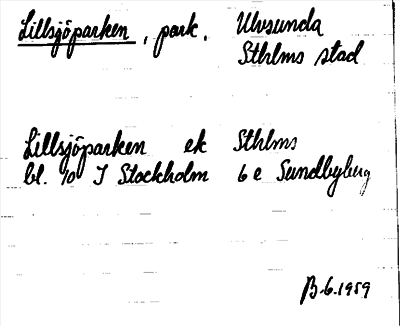 Lillsjöparken, park. Ulvsunda
Sthlms stad
Lillsjöparken ek Sthlms
bl. 10 I Stockholm 6 e Sundbyberg
B-6.1959